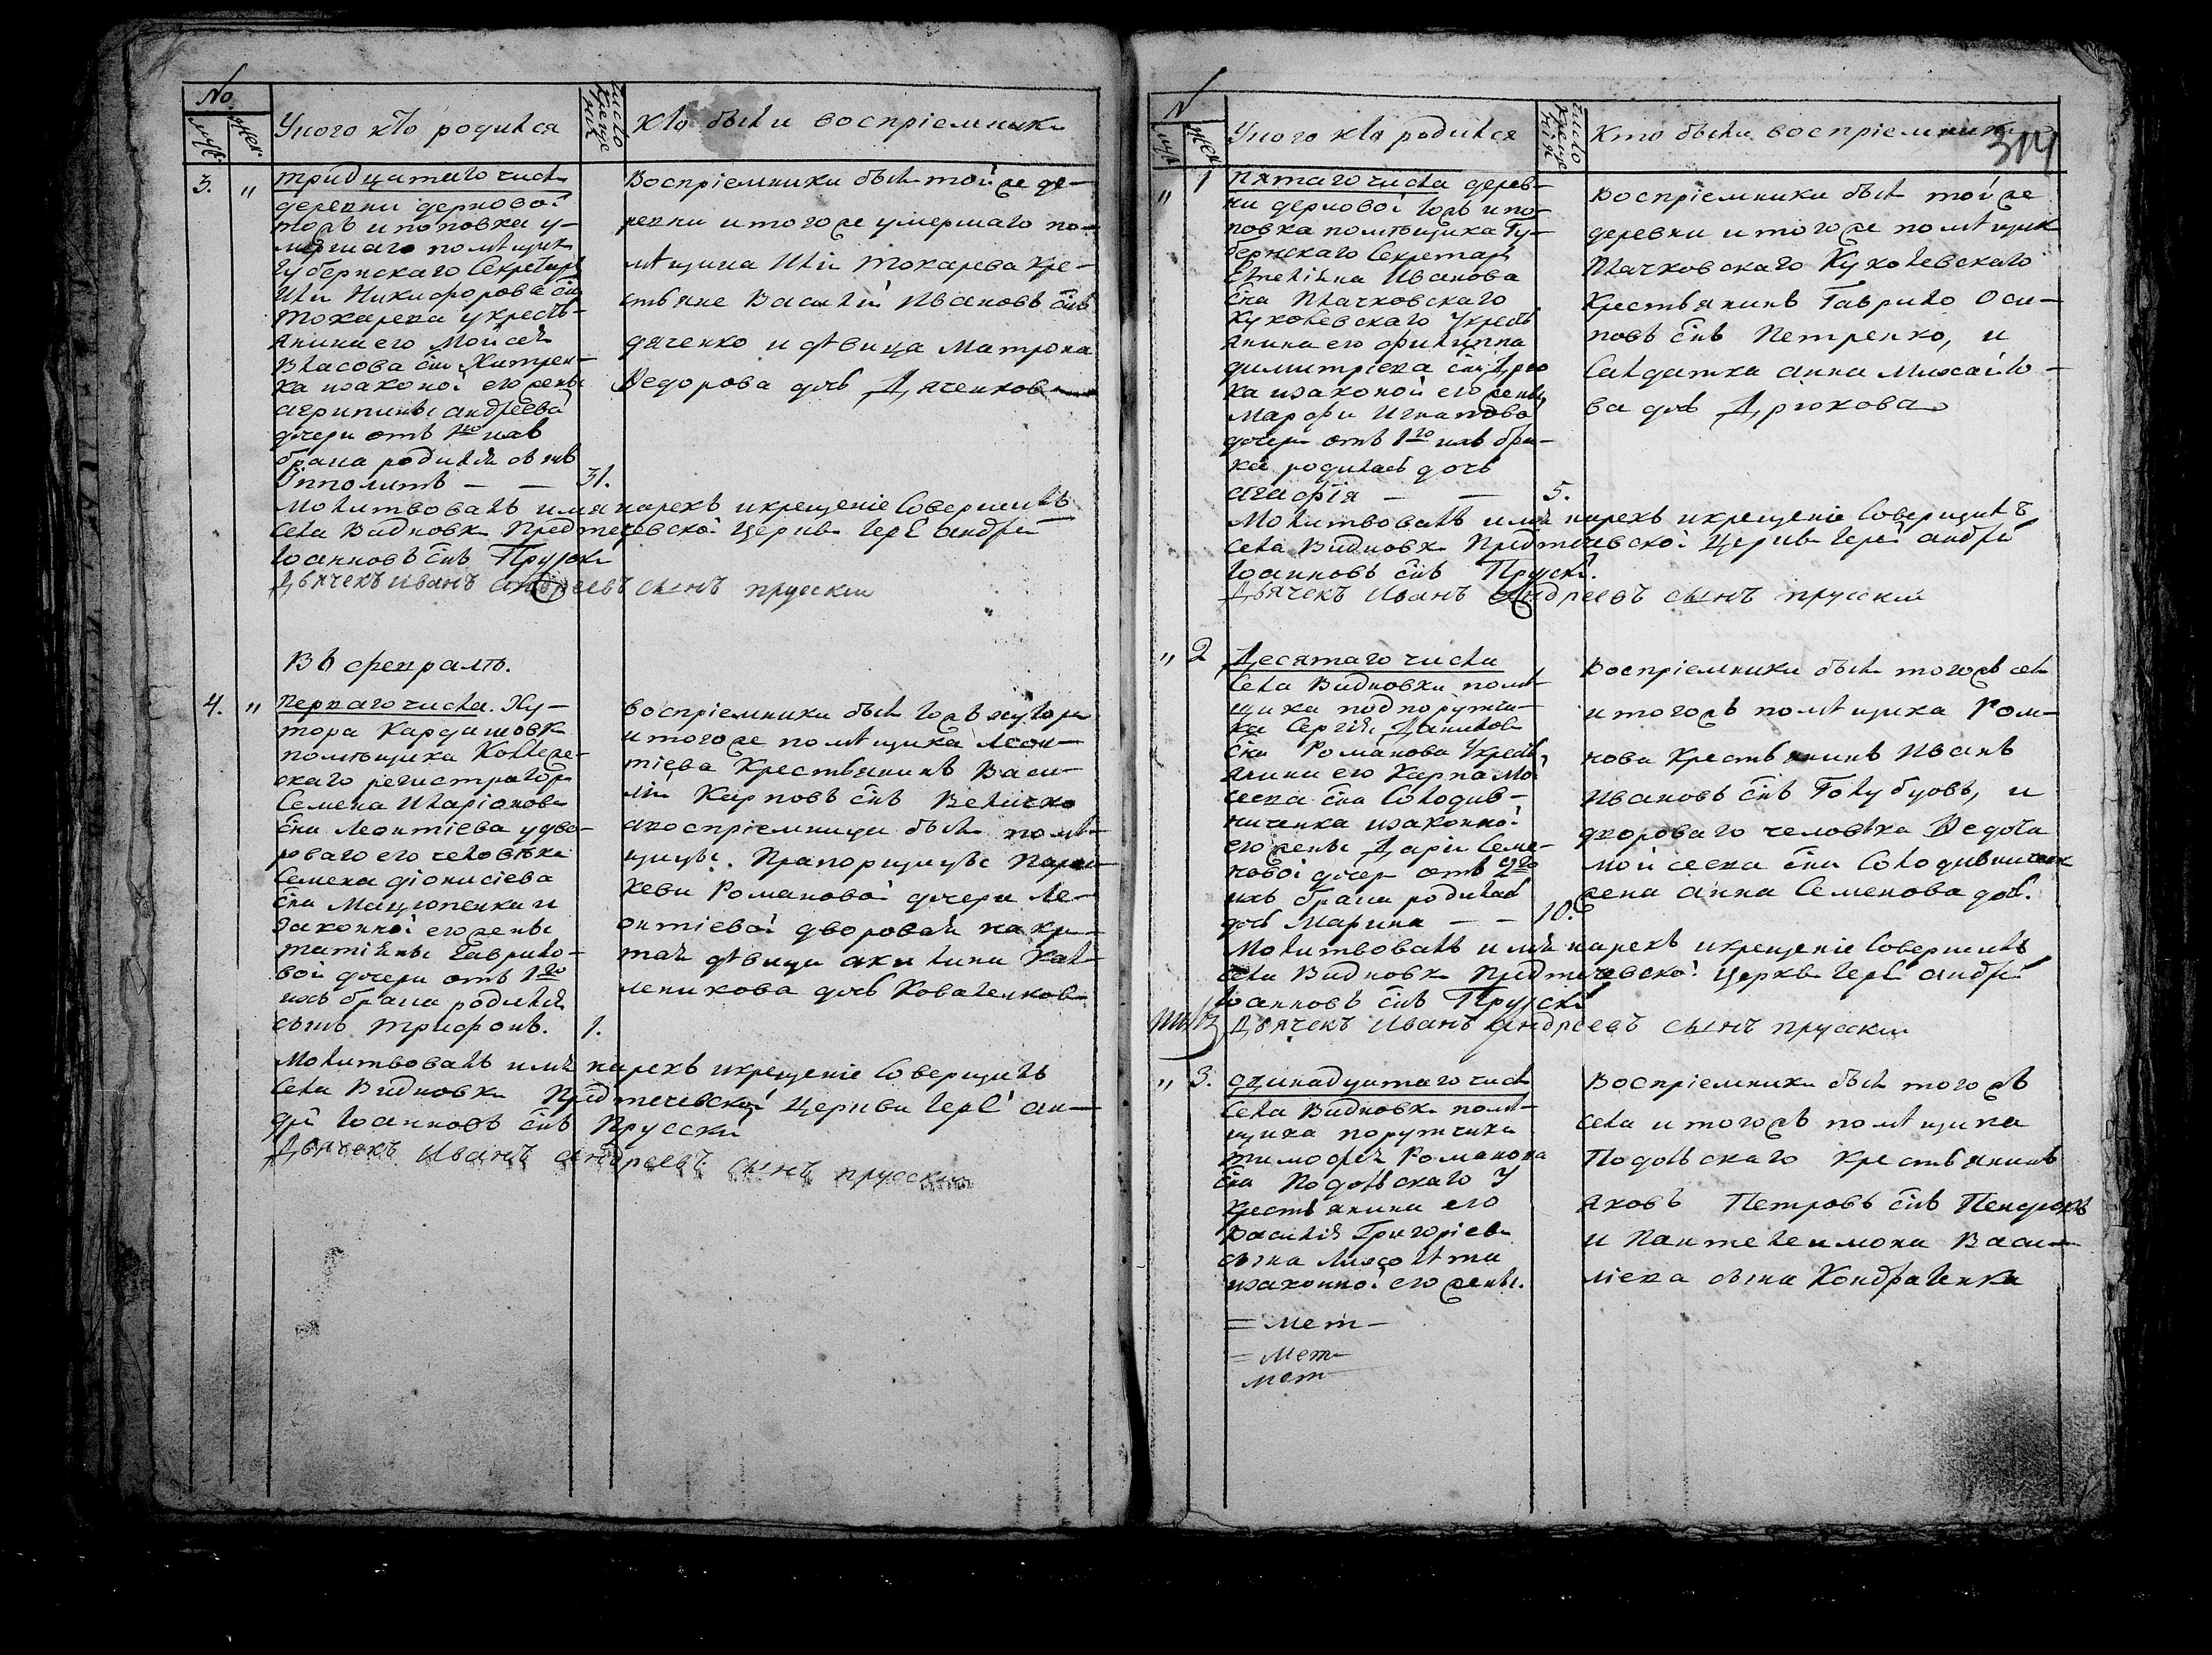 No
муж. жен.
У кого кто родился
число крещения
Кто были воспріемники
3. "
тридцатаго числа
деревни дерновой
тожъ и поповка у-
мершаго помѣщика
Губернскаго Секретаря
Ильи Никифорова сна
Токарева у крестъ-
янина его Мойсея
Власова сна Хитрен-
ка изаконой его жены
агрипины андреевой
дочери отъ 1го ихъ
брака родился сынъ
Ипполитъ — — 31.
Воспріемники были тойже де-
ревни и тогоже умершаго по-
мѣщика Ильи Токарева кре-
стьяне Василій Ивановъ снъ
дяченко и дѣвица Матрона
Ѳедорова дочь Дяченкова
Молитвовалъ имя нарекъ и крещеніе Совершилъ
Села Видновки Предтечевской Церкви Іерей андрей
Іоанновъ снъ Прускій
Дьячекъ Иванъ андреевъ сынъ прусскии
Въ февралѣ.
4. "
Перваго числа. Ху-
тора Кардашовки
помѣщика Коллеж-
скаго регистратора
Семена Иларіонова
сна Леонтіева у дво-
роваго его человѣка
Семена діонисіева
сна Мацюпенка и
законной его жены
татіяны Гаврило-
вой дочери отъ 1го
ихъ брака родился
сынъ трифонъ. 1.
воспріемники были тогожъ хутора
и тогоже помѣщика Леон-
тіева Крестьянинъ Васи-
лій Карповъ снъ Величко
авоспріемници были помѣ-
щицы. Прапорщицы Параске-
кеви Романовой дочери Ле-
онтіевой дворовая
дѣвица акилина Кал-
леникова дочь Коваленкова
Молитвовалъ имя нарекъ и крещеніе Совершилъ
Села Видновки Предтечевской Церкви Іерей ан-
дрей Іоанновъ снъ Прусскій
Дьячекъ Иванъ андреевъ сынъ прусскии
N
муж жен
У кого кто родился
число крещенія
Кто были воспріемники
314
" 1
Пятаго числа дерев-
ни дерновой тожъ и по-
повка помѣщика Гу-
бернскаго Секретаря
Емеліяна Иванова
сна Плачковскаго
Куколевскаго У кресть
янина его филиппа
димитріева сна Дрю
ка изаконой его жены
Марфи Игнатовой
дочери отъ 1го ихъ бра-
ка родилась дочь
агафія — — 5.
Воспріемники были тойже
деревни и тогоже помѣщика
Плачковскаго Куколевскаго
Крестьянинъ Гаврило Оси-
повъ снъ Петренко, и
Салдатка анна Михайло-
ва дочь Дрюкова
Молитвовалъ имя нарекъ и крещеніе Совершилъ
Села Видновки Предтечевской Церкви Іерей андрей
Іоанновъ снъ Прускій.
Дьячекъ Иванъ андреевъ сынъ прусскии
" 2
Десятаго числа
Села Видновки помѣ-
щика подпоручи-
ка Сергія Данилова
сна Романова У кресть
янина его Карпа Мой
сеева сна Солодив-
ниченка изаконной
его жены Дарьи Семе-
новой дочери отъ 2го
ихъ брака родилась
дочь Марина — — 10.
Воспріемники были тогожъ села
и тогожъ помѣщика Ром-
нова Крестьянинъ Иванъ
Ивановъ снъ Голубцовъ, и
двороваго человѣка Ѳедота
Мойсеева сна Солодивниченка
жена анна Семенова дочь.
Молитвовалъ имя нарекъ и крещеніе Совершилъ
Села Видновки Предтечевской Церкви Іерей андрей
Іоанновъ снъ Прускій
Дьячекъ Иванъ андреевъ сынъ прусскии
" 3.
одинадцатаго числа
Села Видновки помѣ-
щика порутчика
тимофея Романова
сна Подольскаго У
крестьянина его
Василія Григоріева
сына Лихолѣта
изаконной его жены.
= мет-
= мет-
мет
Воспріемники были тогожъ
села и тогожъ помѣщика
Подольскаго крестьянинъ
Яковъ Петровъ снъ
и Пантелеимона Васи-
ліева сына Кондратенка